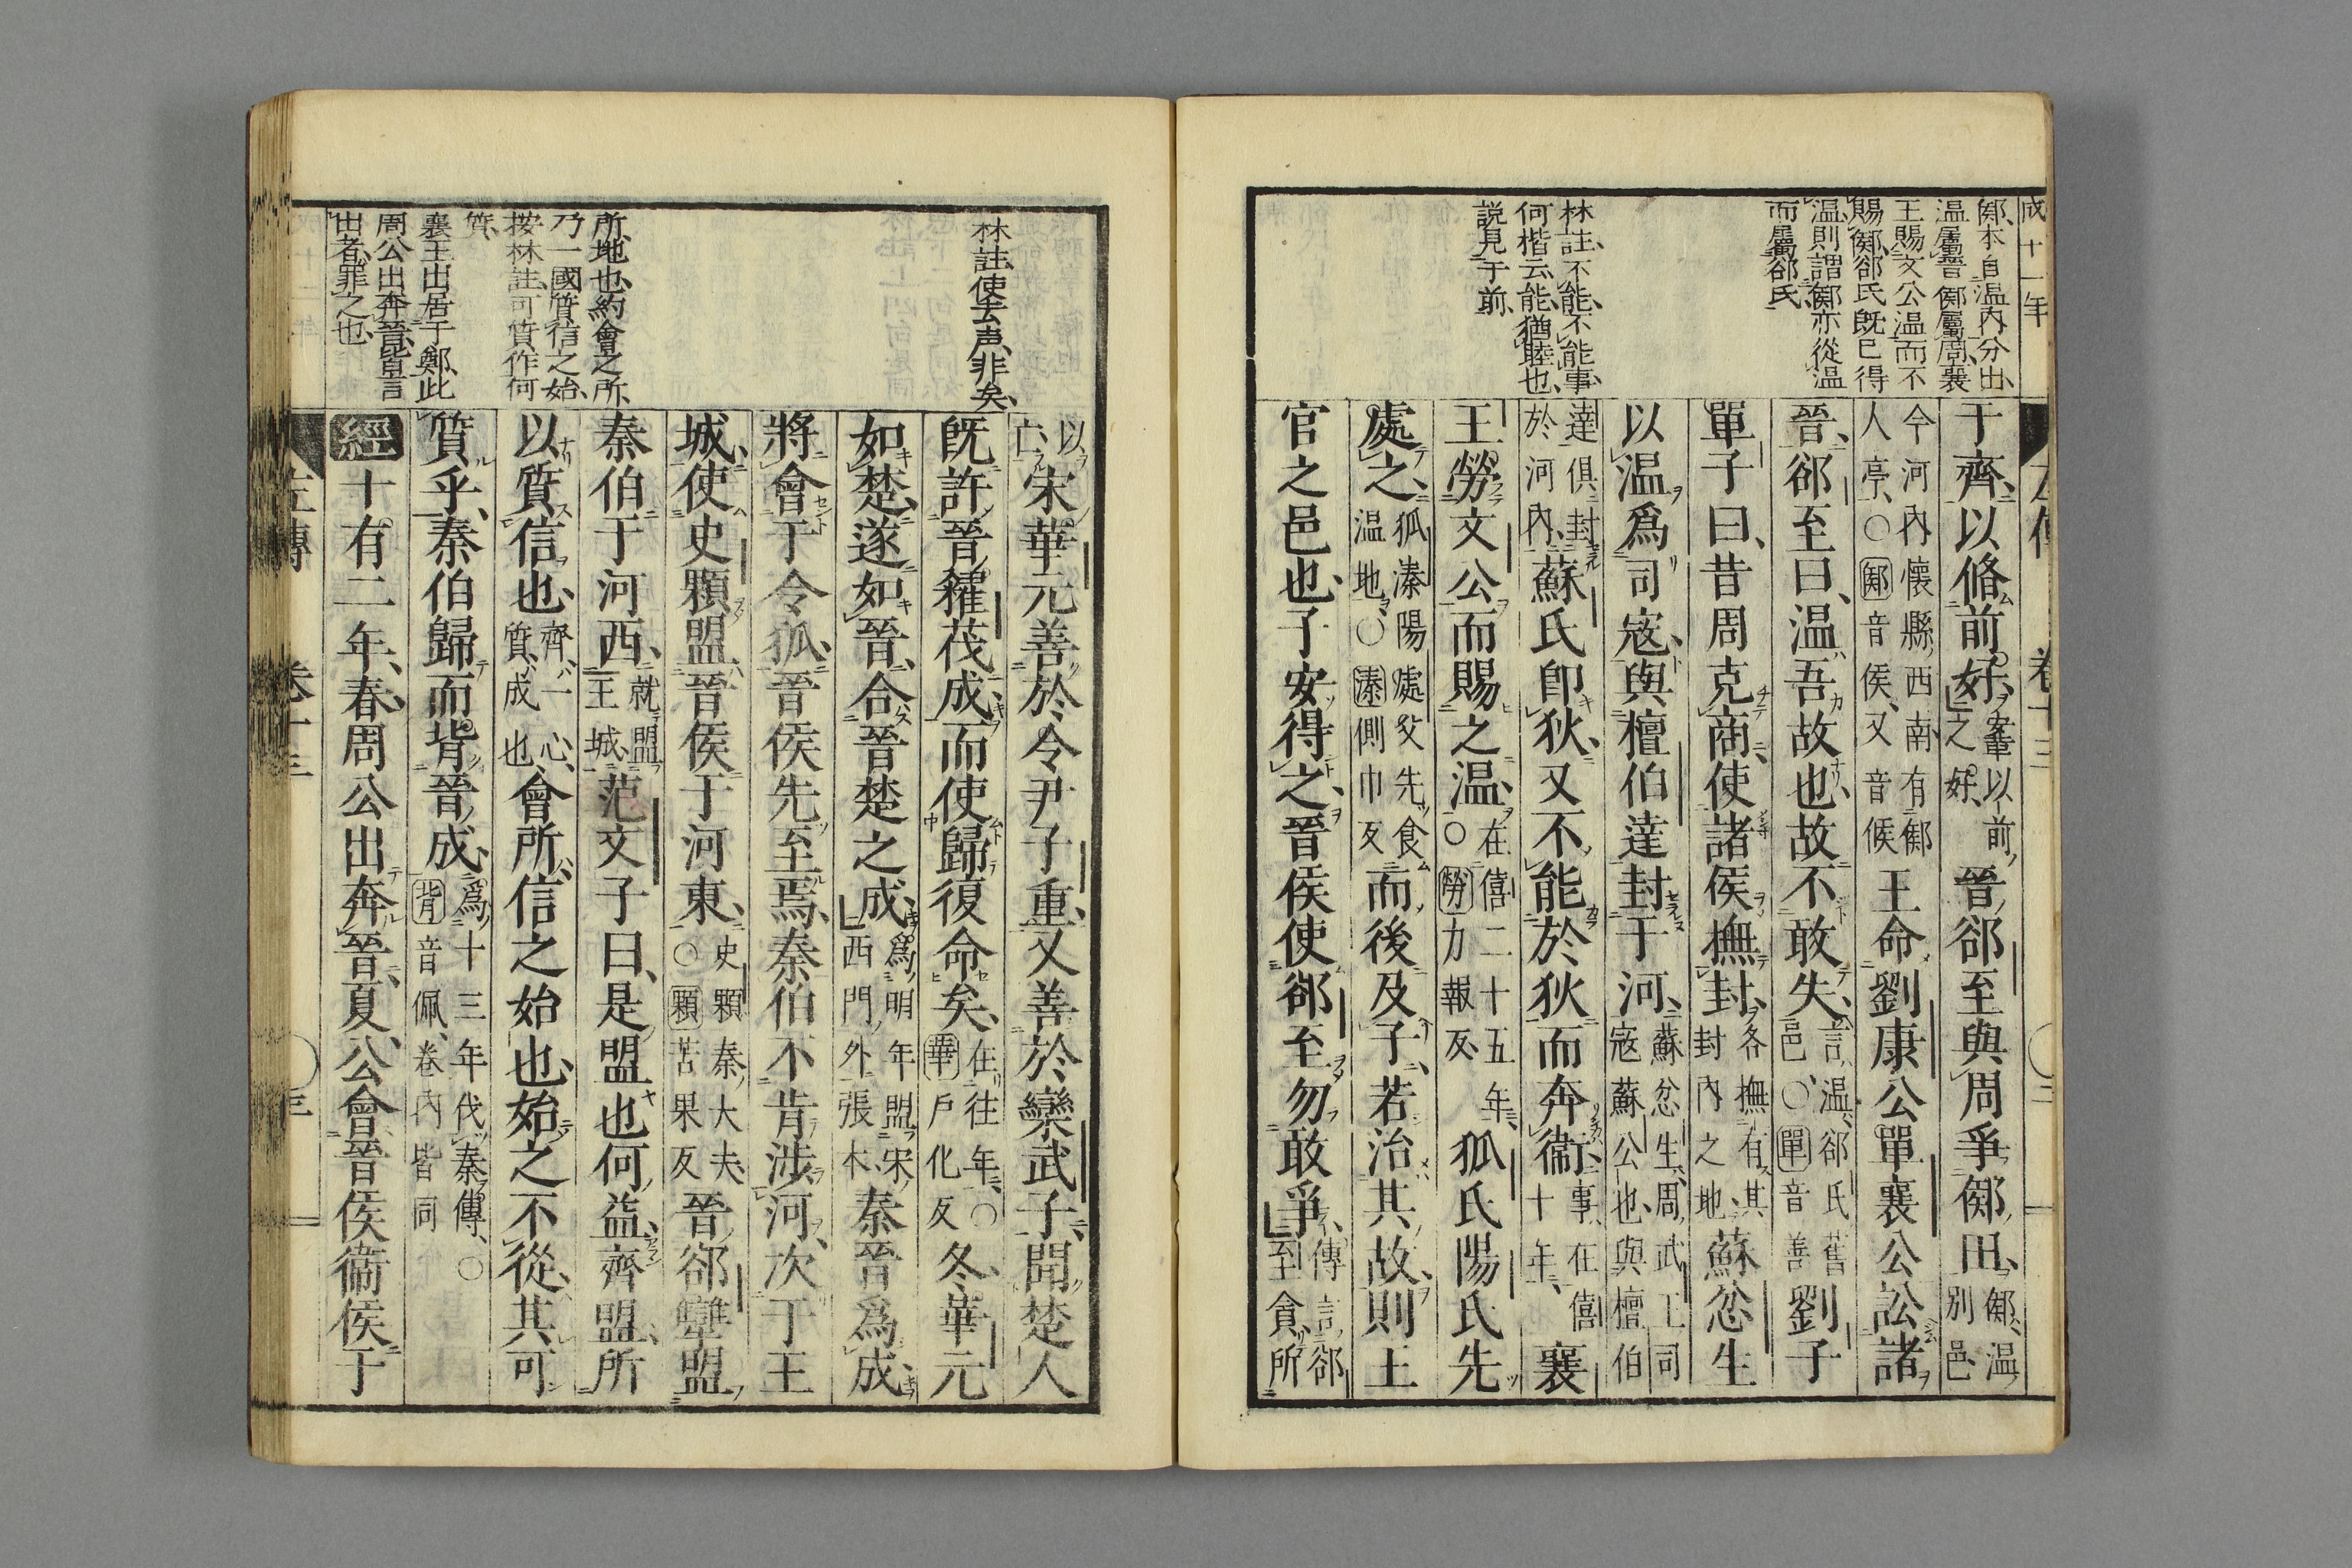 成十一年
鄇本自温内分出
温屬晉鄇屬周襄
王賜文公温而不
賜鄇郤氏既已得
温則謂鄇亦從温
而屬郤氏
林註不能不能事
何楷云能猶睦也
説見于前
左傳 卷十三 ○三
于齊以脩前好鞌以前之好晉郤至與周爭鄇田鄇温別邑
今河内懷縣西南有鄇人亭○鄇音侯又音候王命劉康公單襄公訟諸
晉郤至曰温吾故也故不敢失言温郤氏舊邑○單音善劉子
單子曰昔周克商使諸侯撫封各撫有其封内之地蘇忿生
以温爲司寇與檀伯達封于河蘇忿生周武王司寇蘇公也與檀伯
達俱封於河内蘇氏卽狄又不能於狄而奔衞事在僖十年襄
王勞文公而賜之温在僖二十五年○勞力報反狐氏陽氏先
處之狐溱陽處父先食温地○溱側巾反而後及子若治其故則王
官之邑也子安得之晉侯使郤至勿敢爭傳言郤至貪所
林註使去声非矣
所地也約會之所
乃一國質信之始
按林註可質作何
質
襄王出居于鄭此
周公出奔晉皆言
出者罪之也
以亡宋華元善於令尹子重又善於欒武子聞楚人
既許晉糴茷成而使歸復命矣在往年○華戸化反冬華元
如楚遂如晉合晉楚之成爲明年盟宋西門外張本秦晉爲成
將會于令狐晉侯先至焉秦伯不肯涉河次于王
城使史顆盟晉侯于河東史顆秦大夫○顆苦果反晉郤犫盟
秦伯于河西就盟王城范文子曰是盟也何益齊盟所
以質信也齊一心質成也會所信之始也始之不從其可
質乎秦伯歸而背晉成爲十三年伐秦傳○背音佩卷内皆同
經十有二年春周公出奔晉夏公會晉侯衞侯于
左傳 卷十三 ○三